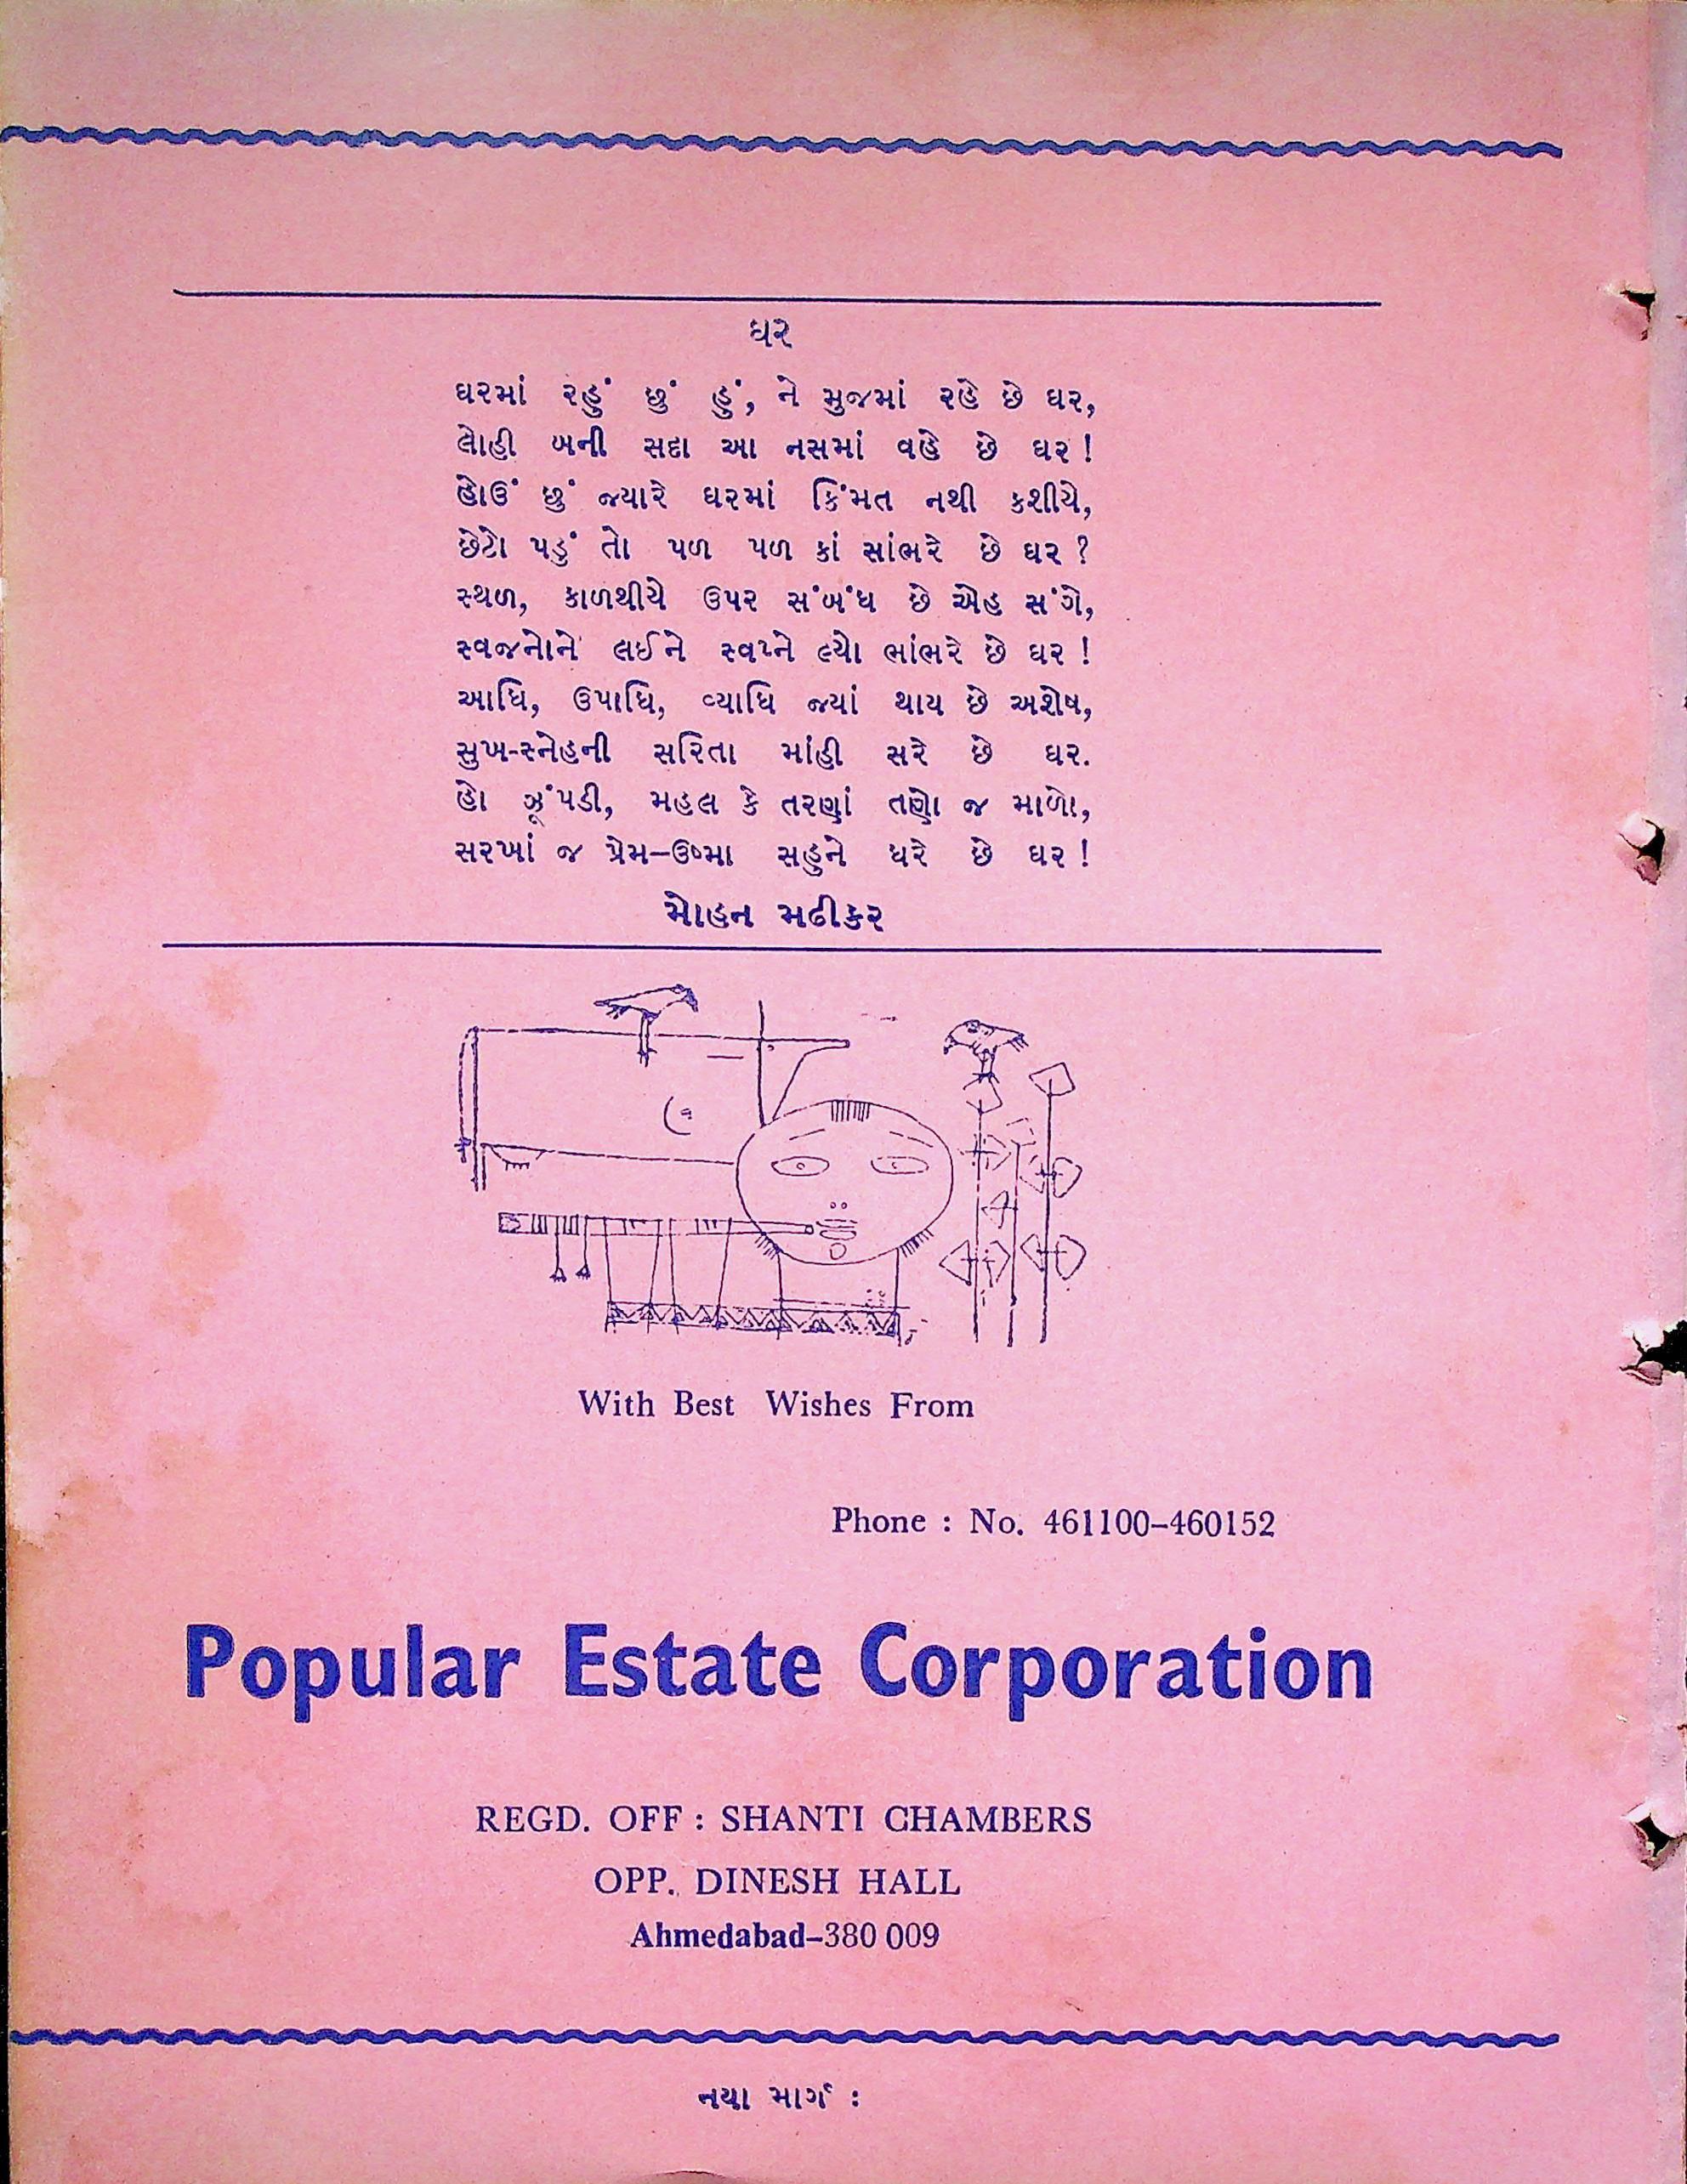 ઘર
ઘરમાં રહું છું હું, ને મુજમાં રહે છે ઘર,
લોહી બની સદા આ નસમાં વહે છે ઘર !
હોઉં છું જ્યારે ઘરમાં કિંમત નથી કશીયે,
છેટો પડું તો પળ પળ કાં સાંભરે છે ઘર ?
સ્થળ, કાળથીયે ઉપર સંબંધ છે એહ સંગે,
સ્વજનોને લઈને સ્વપ્ને લ્યો ભાંભરે છે ઘર !
આધિ, ઉપાધિ, વ્યાધિ જ્યાં થાય છે અશેષ,
સુખ-સ્નેહની સરિતા માંહી સરે છે ઘર.
હો ઝૂંપડી, મહલ કે તરણાં તણો જ માળો,
સરખાં જ પ્રેમ–ઉષ્મા સહુને ધરે છે ઘર !
મોહન મઢીકર
With Best Wishes From
Phone : No. 461100–460152
Popular Estate Corporation
REGD. OFF : SHANTI CHAMBERS
OPP. DINESH HALL
Ahmedabad–380 009
નયા માર્ગ :